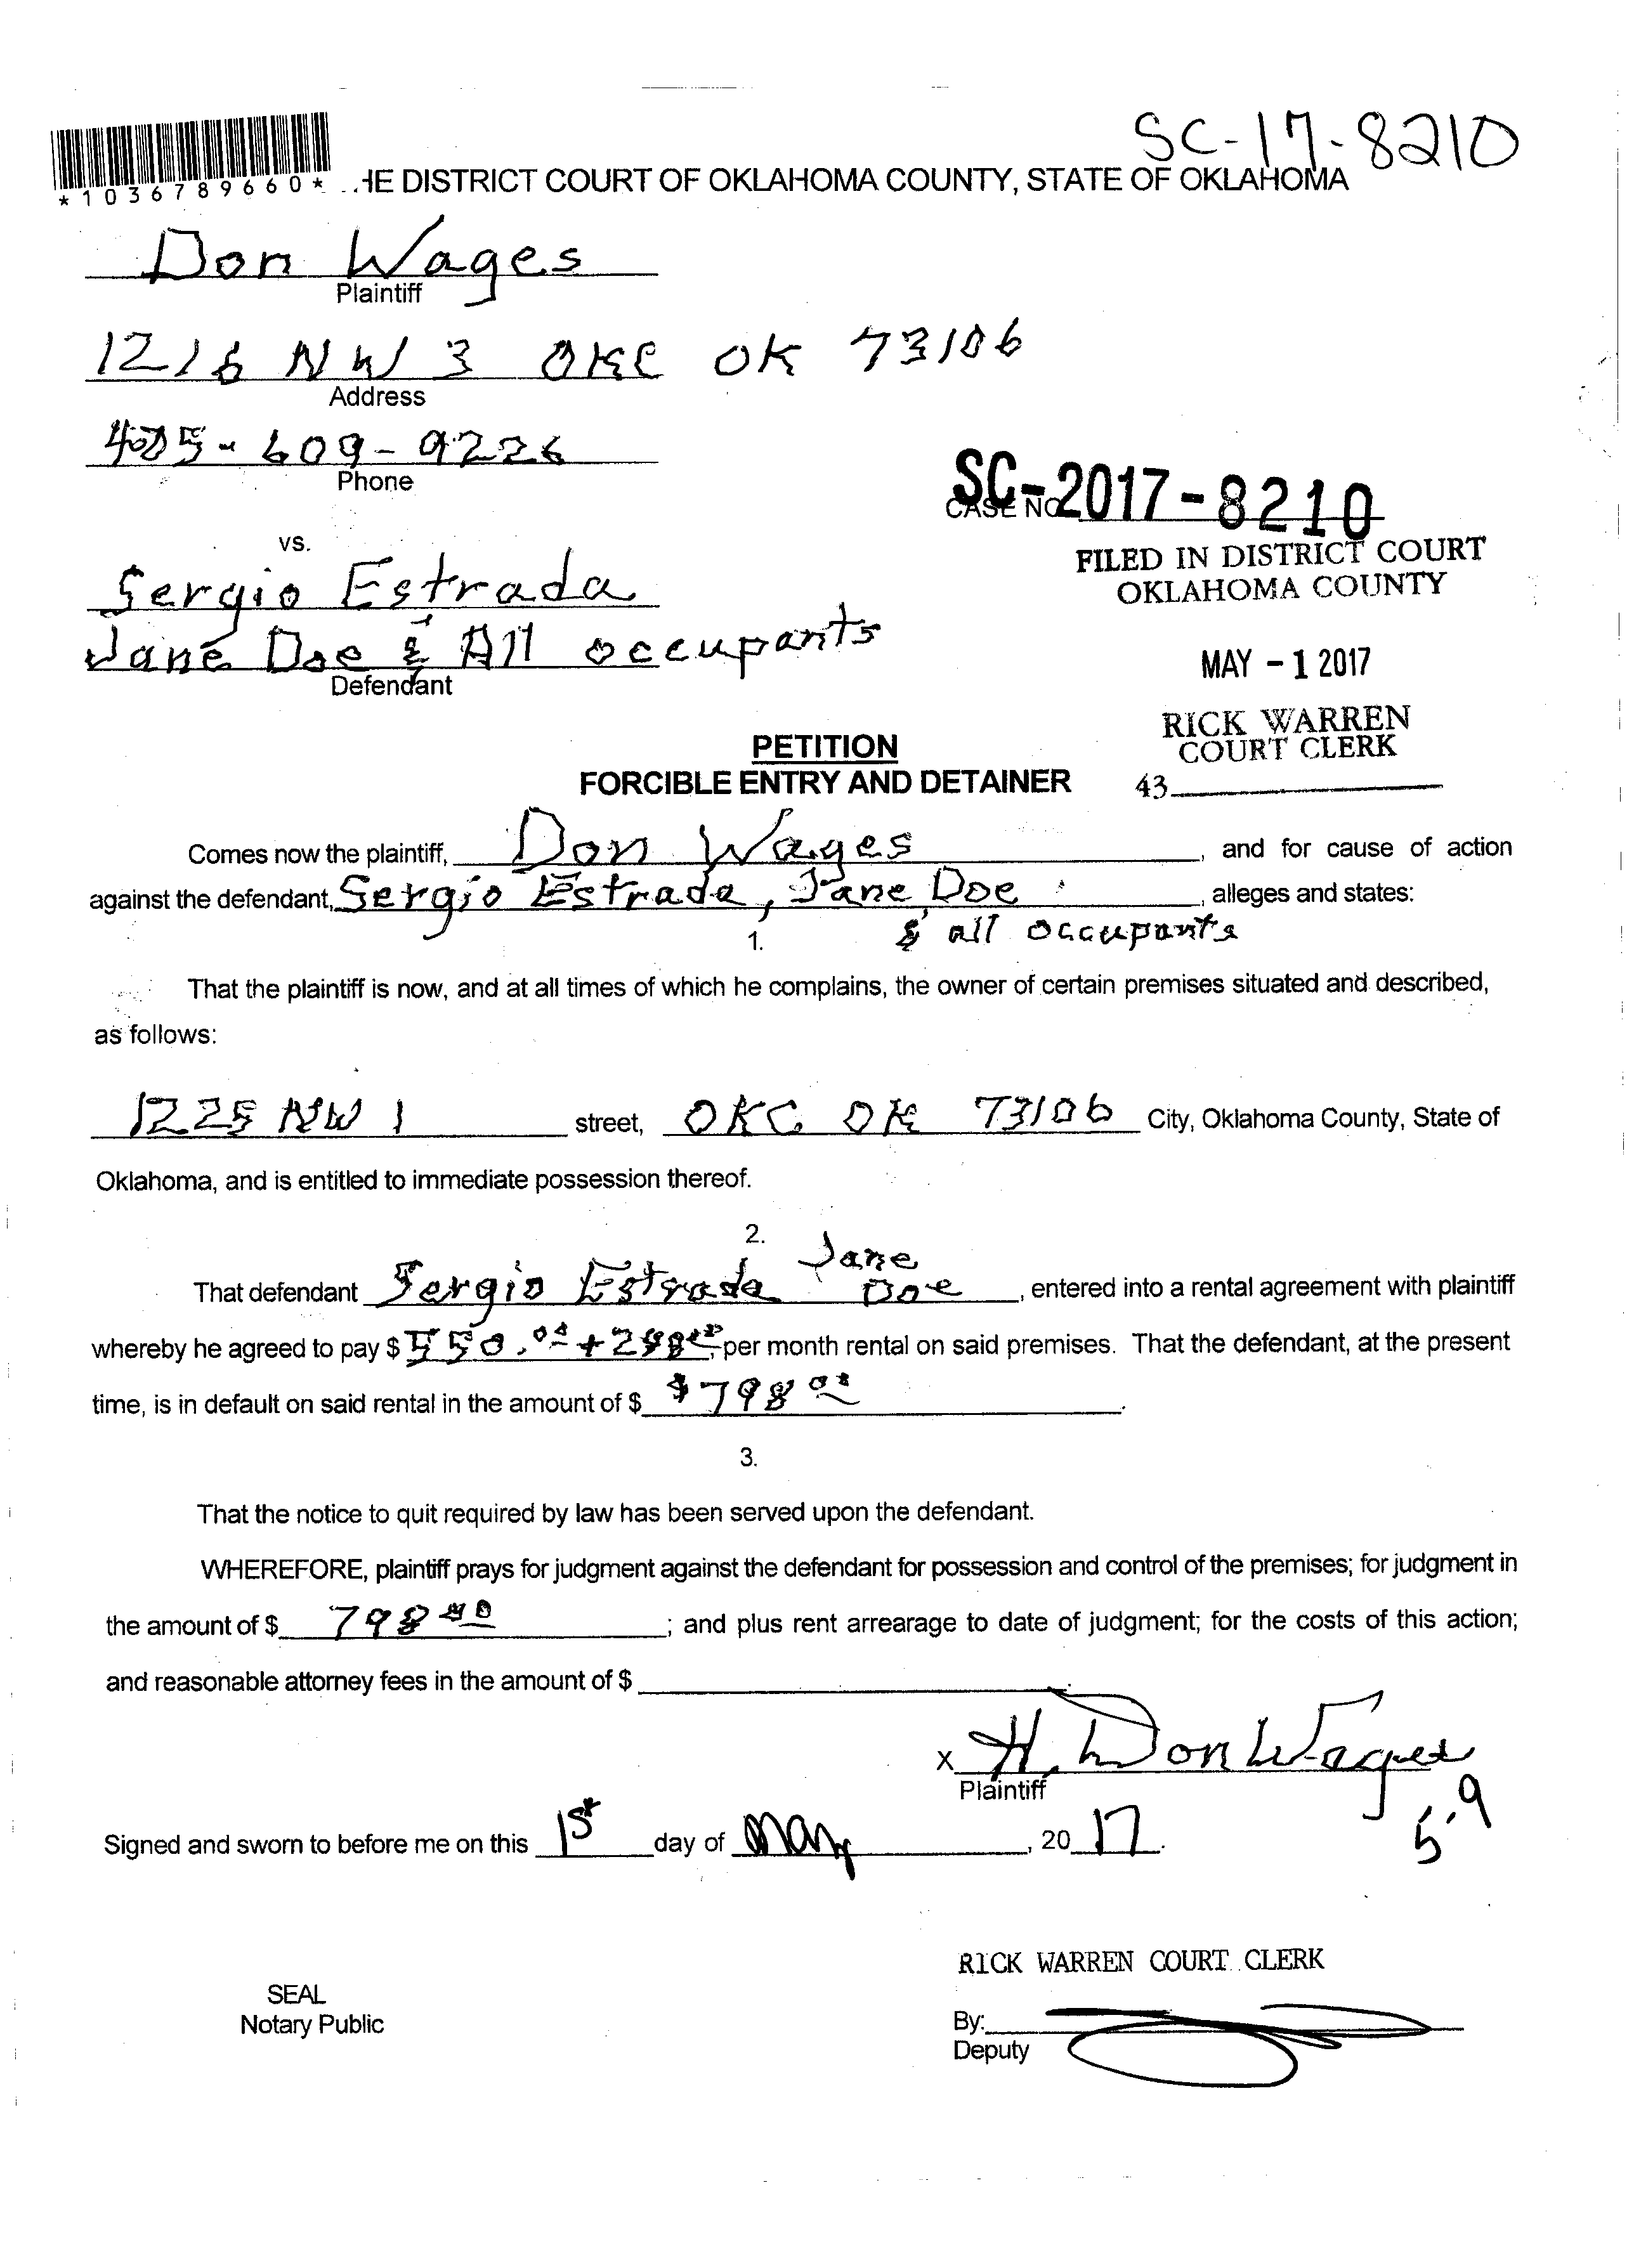 SC-17-8210
*1036789660*
HE DISTRICT COURT OF OKLAHOMA COUNTY, STATE OF OKLAHOMA
Don Wages
Plaintiff
1216 NW 3 OKC OK 73106
Address
405-609-9226
Phone
SC-2017-8210
CASE NO
vs.
FILED IN DISTRICT COURT
OKLAHOMA COUNTY
Sergio Estrada
Jane Doe & All occupants
Defendant
MAY - 1 2017
RICK WARREN
COURT CLERK
43
PETITION
FORCIBLE ENTRY AND DETAINER
Comes now the plaintiff, Don Wages, and for cause of action
against the defendant, Sergio Estrada, Jane Doe, alleges and states:
& all occupants
1.
That the plaintiff is now, and at all times of which he complains, the owner of certain premises situated and described,
as follows:
1225 NW 1 street, OKC OK 73106 City, Oklahoma County, State of
Oklahoma, and is entitled to immediate possession thereof.
2.
That defendant Sergio Estrada Jane Doe, entered into a rental agreement with plaintiff
whereby he agreed to pay $ 550.00 + 248.00 per month rental on said premises. That the defendant, at the present
time, is in default on said rental in the amount of $ $798.00.
3.
That the notice to quit required by law has been served upon the defendant.
WHEREFORE, plaintiff prays for judgment against the defendant for possession and control of the premises; for judgment in
the amount of $ 798.00; and plus rent arrearage to date of judgment; for the costs of this action;
and reasonable attorney fees in the amount of $
X H. Don Wages
Plaintiff
5.9
Signed and sworn to before me on this 1st day of May, 20 17.
RICK WARREN COURT CLERK
SEAL
Notary Public
By:
Deputy